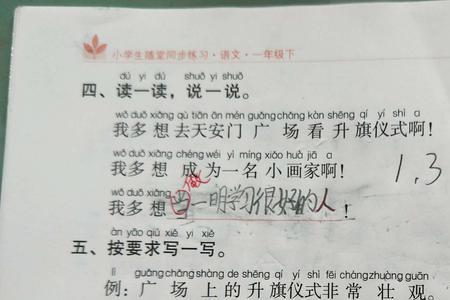 小学生随堂同步练习·语文·一年级下
dú yi dú shuō yi shuō
四、读一读,说一说。
wǒ duō xiǎng qù tiān ān mén guǎng chǎng kàn shēng qí yí shì a
我多想去天安门广场看升旗仪式啊!
wǒ duō xiǎng chéng wéi yì míng xiǎo huà jiā a
我多想成为一名小画家啊! 1.3
wǒ duō xiǎng 做
我多想当一明学习很好的人!
àn yāo qiú xiě yi xiě
五、按要求写一写。
lì guǎng chǎng shàng de shēng qí yí shì fēi cháng zhuàng guān
例:广场上的升旗仪式非常壮观。